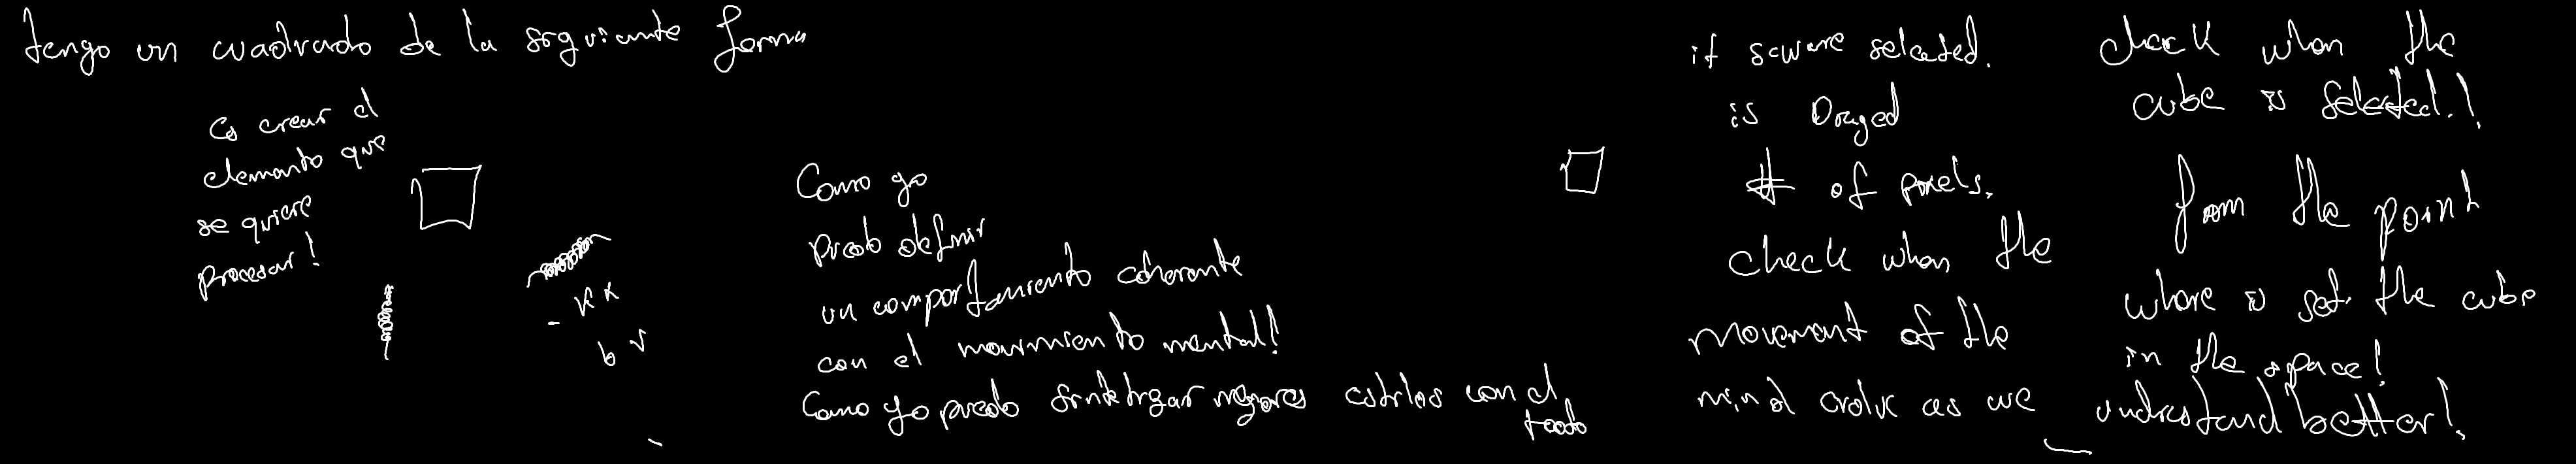 tengo un cuadrado de la siguiente forma
Es crear el
elemento que
se quiere
procesar!
Como yo
puedo definir
un comportamiento coherente
con el movimiento mental!
Como yo puedo sintetizar mejores estilos con el
todo
if scware selected.
is Draged
# of pixels.
check when the
movement of the
mind evolve as we
check when the
cube is selected!!
from the point
where is set the cube
in the space!
understand better!